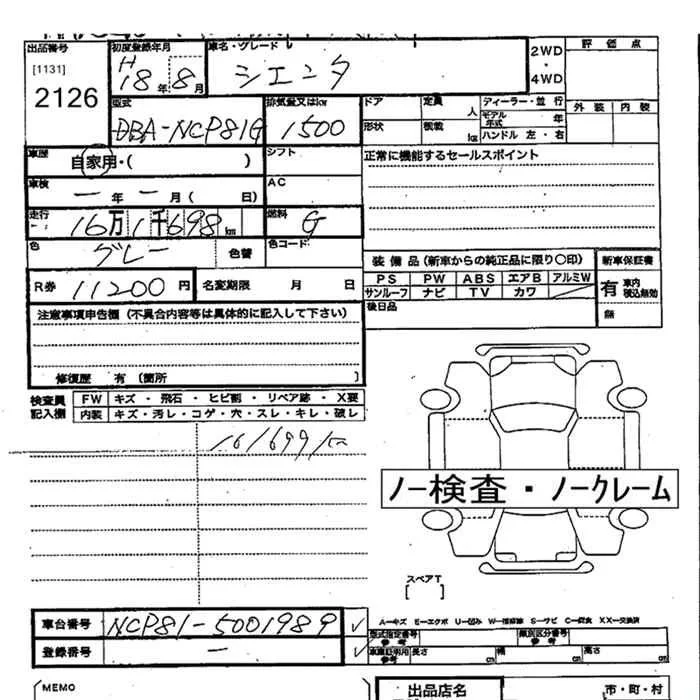 出品番号 初度登録年月 車名・グレード 2WD 評価点
[1131] H 18年 8月 シエンタ ・
2126 4WD
型式 排気量又はkw ドア 定員 人 ディーラー・並行 外装 内装
DBA-NCP81G 1500 形状 積載 kg モデル年式 年
ハンドル 左・右
車歴 自家用・( ) シフト 正常に機能するセールスポイント
車検 一年一月( 日) AC
走行 16万1千698km 燃料 G
色 グレー 色替 色コード
装備品(新車からの純正品に限り〇印) 新車保証書
R券 11200円 名変期限 月 日 PS PW ABS エアB アルミW 有 車内積込無効
サンルーフ ナビ TV カワ
注意事項申告欄(不具合内容等は具体的に記入して下さい) 後日品 無
修復歴 有(箇所
検査員記入欄 FW キズ・飛石・ヒビ割・リペア跡・X要
内装 キズ・汚レ・コゲ・穴・スレ・キレ・破レ
161699km
ノー検査・ノークレーム
スペアT
[ ]
車台番号 NCP81-5001989 ✓
型式指定番号 参考 類別区分番号 参考
登録番号 ー ✓ 車庫証明用参考 長さ cm 幅 cm 高さ cm
MEMO 出品店名 市・町・村